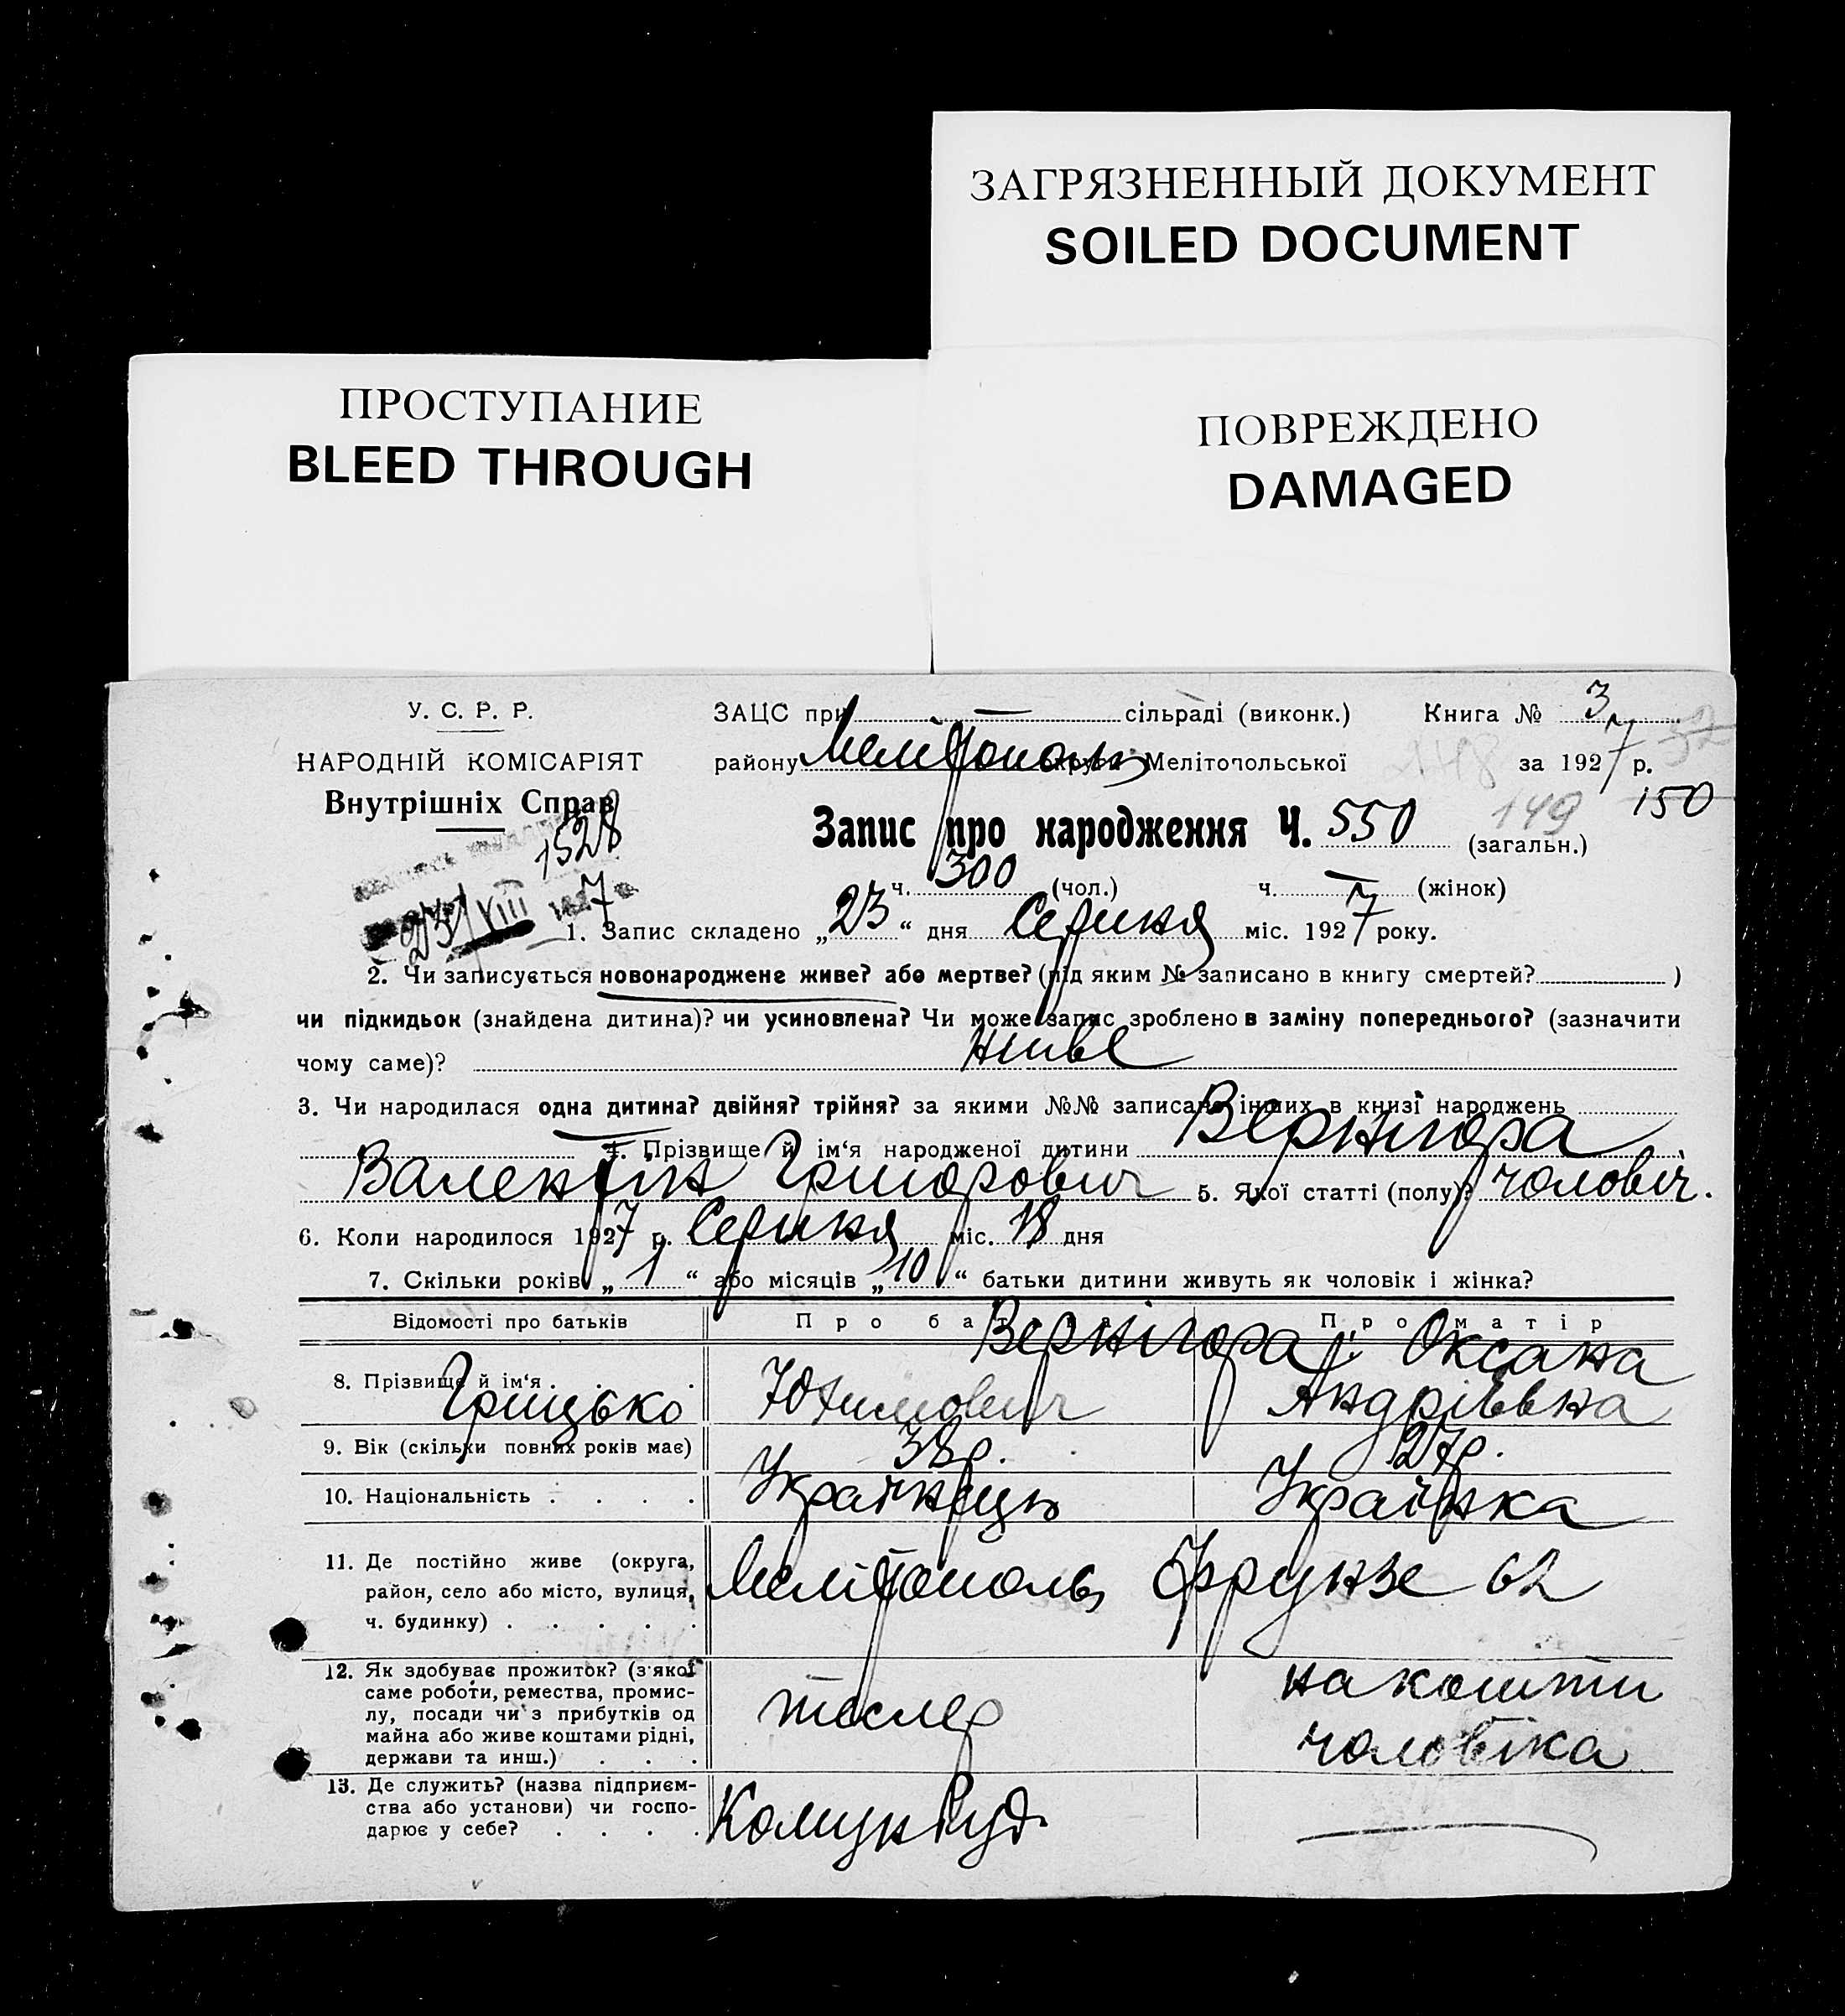 ЗАГРЯЗНЕННЫЙ ДОКУМЕНТ
SOILED DOCUMENT
ПРОСТУПАНИЕ
BLEED THROUGH
ПОВРЕЖДЕНО
DAMAGED
У. С. Р. Р.
НАРОДНІЙ КОМІСАРІЯТ
Внутрішніх Справ
1528
23 VIII 1927
ЗАЦС при — сільраді (виконк.) Книга № 3
району Мелітополь округи Мелітопольської за 1927 р.
149 150
Запис про народження Ч. 550 (загальн.)
ч. 300 (чол.) ч. — (жінок)
1. Запис складено „23“ дня Серпня міс. 1927 року.
2. Чи записується новонароджене живе? або мертве? (під яким № записано в книгу смертей? )
чи підкидьок (знайдена дитина)? чи усиновлена? Чи може запис зроблено в заміну попереднього? (зазначити
чому саме)? живе
3. Чи народилася одна дитина? двійня? трійня? за якими №№ записано інших в книзі народжень
4. Прізвище й ім‘я народженої дитини Вернигора
Валентін Григорович 5. Якої статті (полу)? чоловіч.
6. Коли народилося 1927 р. Серпня міс. 18 дня
7. Скільки років „1“ або місяців „10“ батьки дитини живуть як чоловік і жінка?
Відомості про батьків Про батька Про матір
Вернігора Оксана
8. Прізвище й ім‘я Грицько Юхимович Андріївна
9. Вік (скільки повних років має) 38р. 27р.
10. Національність Українець Українка
11. Де постійно живе (округа,
район, село або місто, вулиця,
ч. будинку) Мелітополь Фрунзе 62
12. Як здобуває прожиток? (з якої
саме роботи, ремества, промис-
лу, посади чи з прибутків од
майна або живе коштами рідні,
держави та инш.) тесляр на кошти
чоловіка
13. Де служить? (назва підприєм-
ства або установи) чи госпо-
дарює у себе? Комунбуд